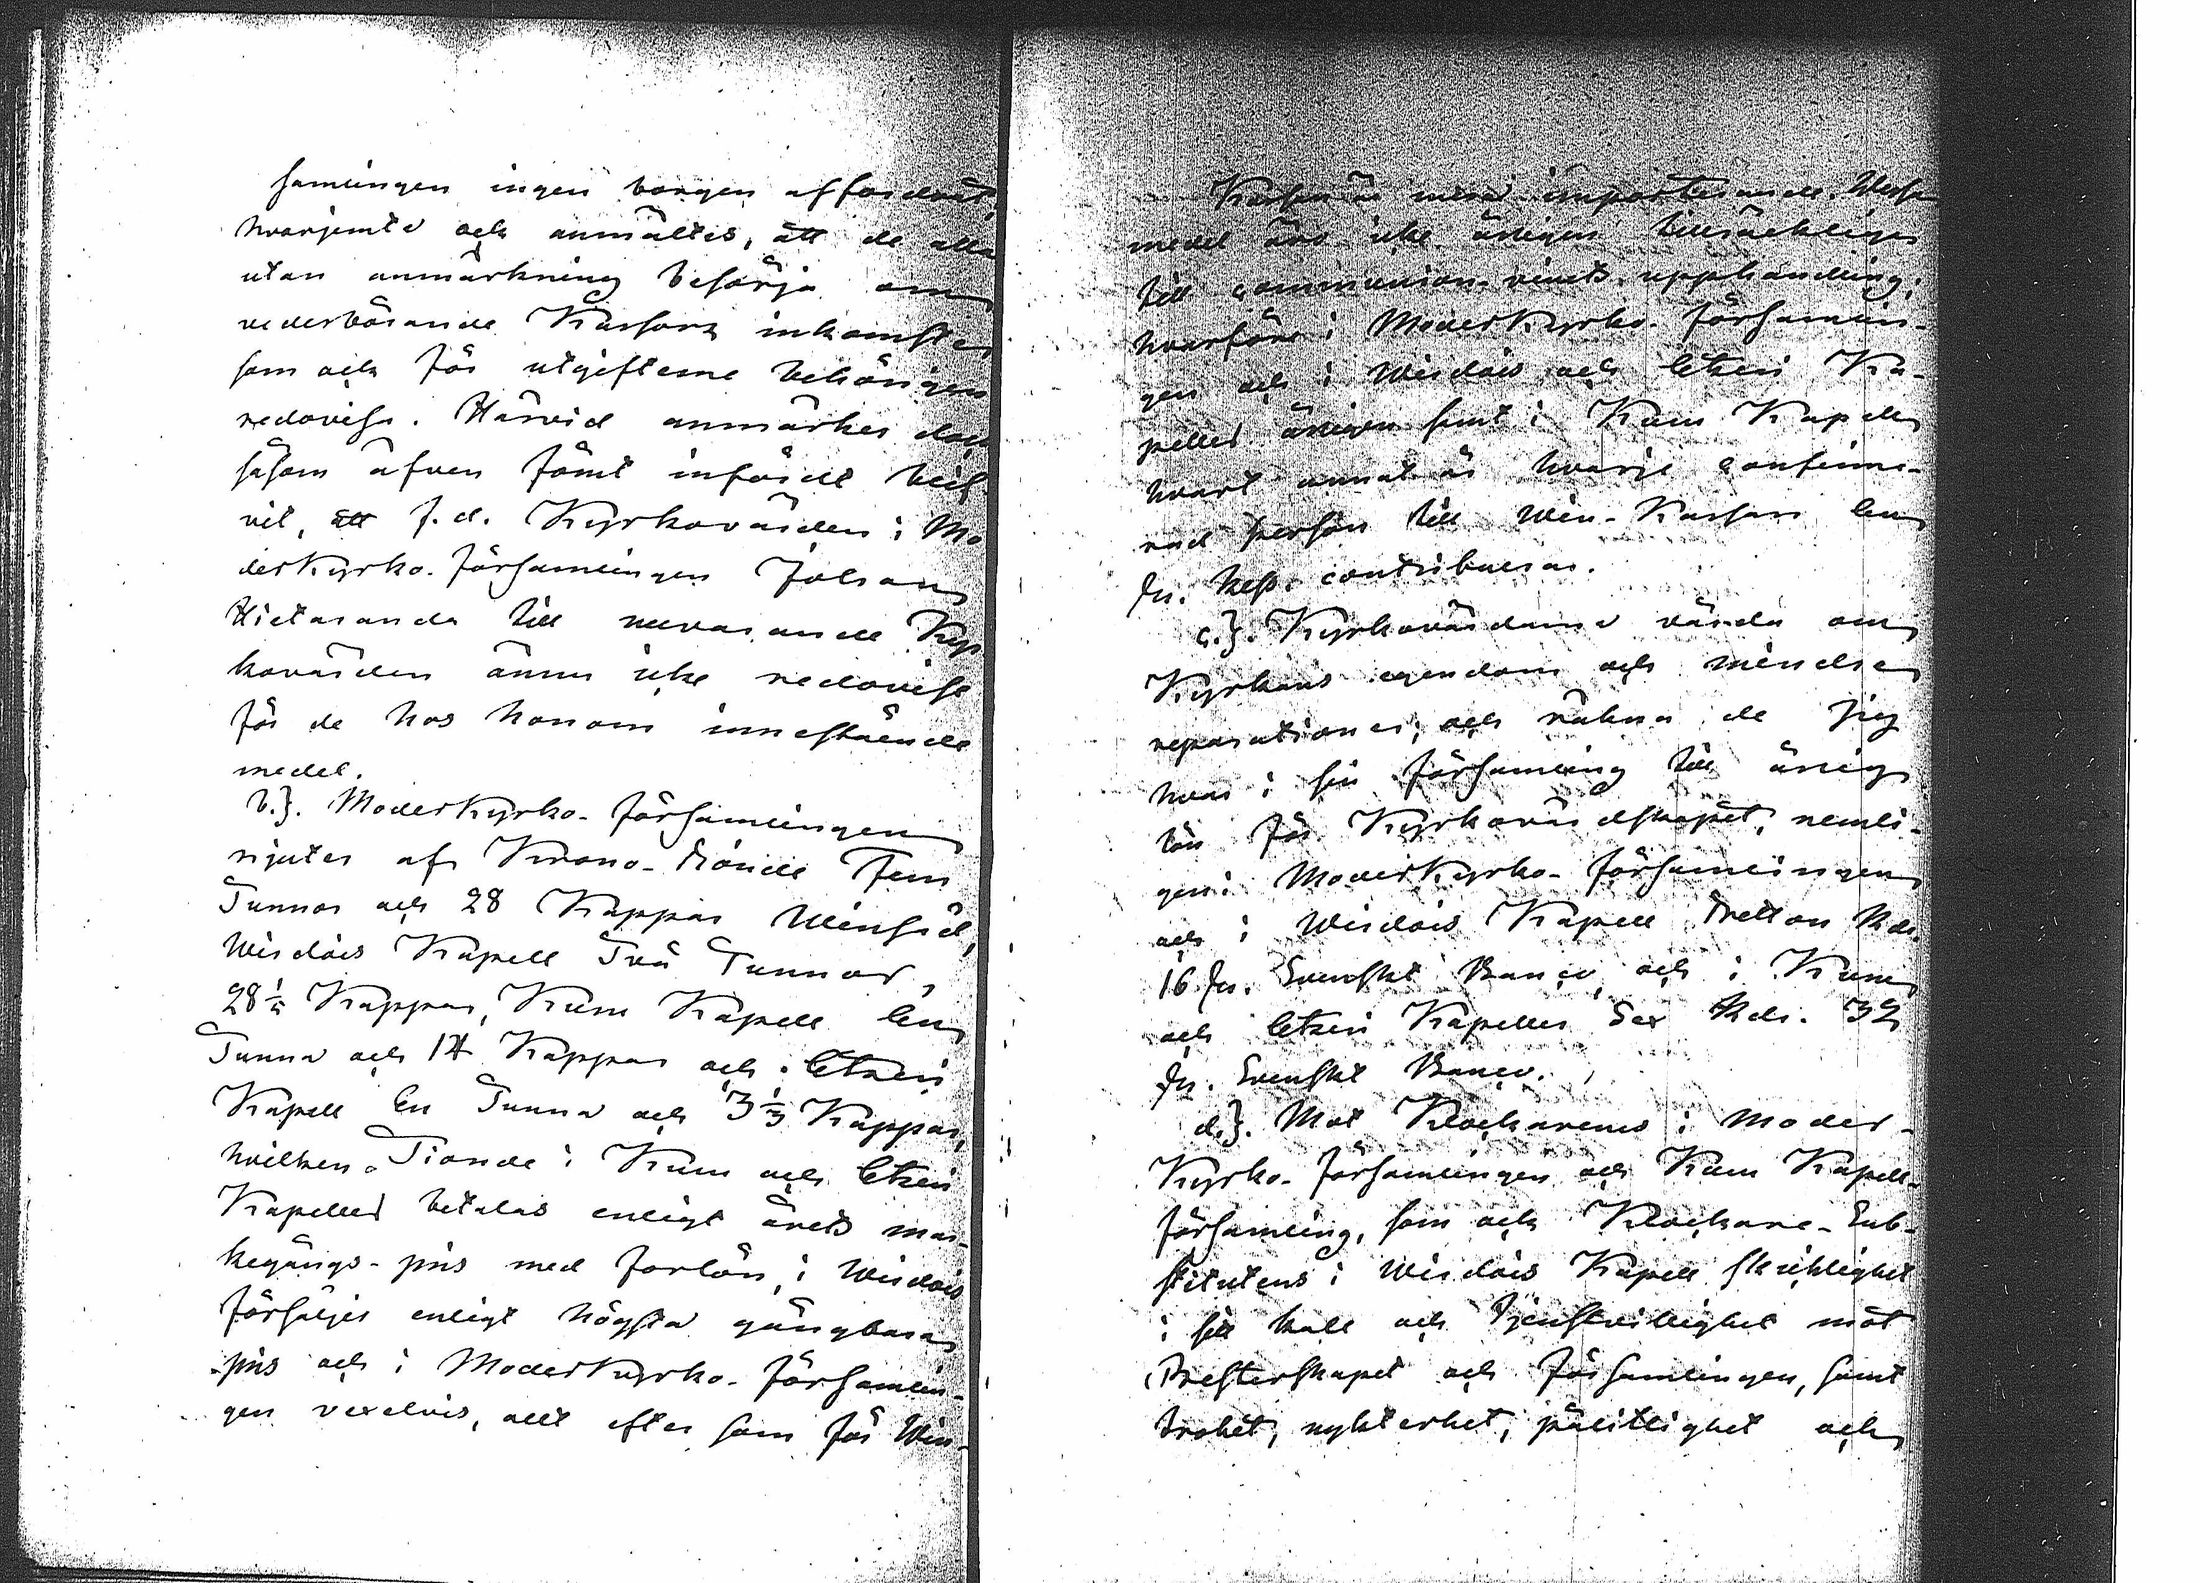 samlingen ingen borgen affordrat,
hvarjemte ock anmältes, att de alla
utan anmärkning besörja om
vederbörande Kassors inkomster
som ock för utgifterne behörigen
redovisa. Härvid anmärkes dock
såsom äfven förut infördt blif-
vit, att f.d. Kyrkovärden i Mo
derkyrko-församlingen Johan
Hietaranda till nuvarande Kyr
kovärden ännu icke redovisat
för de hos honom innestående
medel.
b.}. Moderkyrko-församlingen
njuter af Krono-Tionde Fem
Tunnor och 28 Kappar Winsäd,
Wirdois Kapell Två Tunnor,
28½ Kappar, Kuru Kapell en
Tunna och 14 Kappar och Etzeri
Kapell En Tunna och 3⅓ Kappar,
hvilken Tionde i Kuru och Etzeri
Kapeller betalas enligt årets mar-
kegångs-pris med forlön, i Wirdois
försäljes enligt högsta gångbara
pris och i Moderkyrko-församlin-
gen vexelvis, allt efter som för Win-
Kassan är mera importerande. Dessa
medel äro icke årligen tillräckliga
till communion-vinets upphandling;
hvarföre i Moderkyrko-församlin-
gen och i Wirdois och Etzeri Ka-
peller årligen samt i Kuru Kapell
hvart annat år hvarje confirme-
rad person till Win-Kassan en
sk. Rgs. contribuerar.
c.}. Kyrkovärdarne vårda om
Kyrkans egendom och mindre
reparationer; och räkna de sig
hvar i sin församling till årlig
lön för Kyrkovärdskapet, nemli-
gen: i Moderkyrko-församlingen
och i Wirdois Kapell Tretton Rdr.
16 sk. Svenskt Banco och i Kuru
och Etzeri Kapeller Sex Rdr. 32
sk. Svenskt Banco.
d.}. Mot Klockarenes i Moder-
Kyrko-församlingen och Kuru Kapell-
församling, som ock Klockare-Sub-
stitutens i Wirdois Kapell skicklighet
i sitt kall och tjenstvillighet mot
Presterskapet och församlingen, samt
trohet, nykterhet, pålitlighet och